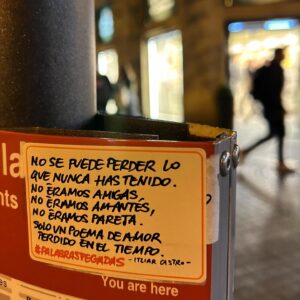 NO SE PUEDE PERDER LO
QUE NUNCA HAS TENIDO.
NO ÉRAMOS AMIGAS,
NO ÉRAMOS AMANTES,
NO ÉRAMOS PARETA.
SOLO UN POEMA DE AMOR
PERDIDO EN EL TIEMPO.
#PALABRASPEGADAS - ITZIAR CASTRO -
You are here